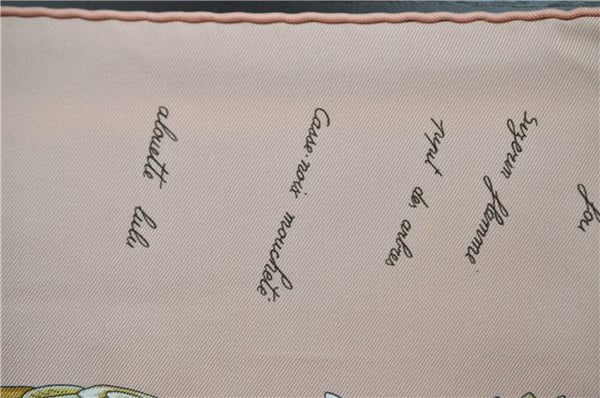 fou
Sizerin flammé
pipit des arbres
Casse-noix moucheté
alouette lulu